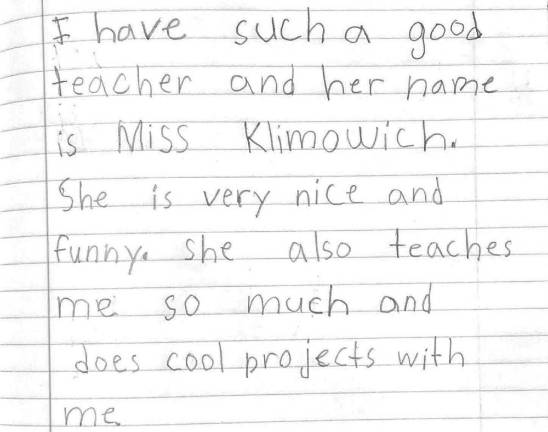 I have such a good
teacher and her name
is Miss Klimowich.
She is very nice and
funny. she also teaches
me so much and
does cool projects with
me.